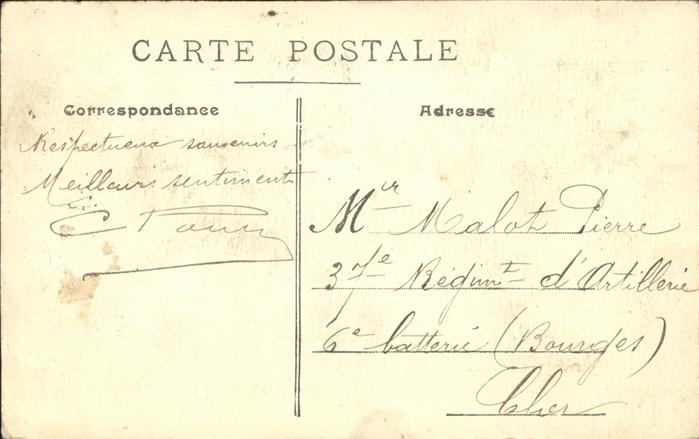 CARTE POSTALE
Correspondance
Respectueux souvenirs
Meilleurs sentiments
Adresse
Mr Malot Pierre
37e Régimt d'Artillerie
6e batterie (Bourges)
Cher